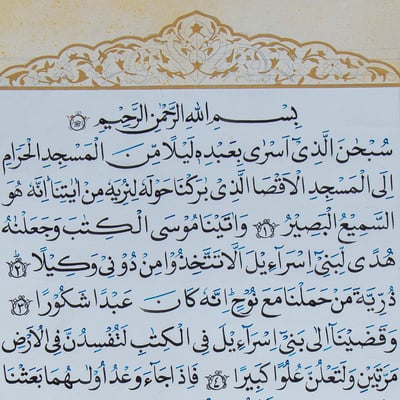 بِسْمِ اللهِ الرَّحْمٰنِ الرَّحِيْمِ
سُبْحٰنَ الَّذِیْٓ اَسْرٰی بِعَبْدِهٖ لَيْلًا مِّنَ الْمَسْجِدِ الْحَرَامِ
اِلَی الْمَسْجِدِ الْاَقْصَا الَّذِیْ بٰرَكْنَا حَوْلَهٗ لِنُرِيَهٗ مِنْ اٰيٰتِنَا اِنَّهٗ هُوَ
السَّمِيْعُ الْبَصِيْرُ ﴿۱﴾ وَاٰتَيْنَا مُوْسَی الْكِتٰبَ وَجَعَلْنٰهُ
هُدًی لِّبَنِیْٓ اِسْرَآءِيْلَ اَلَّا تَتَّخِذُوْا مِنْ دُوْنِیْ وَكِيْلًا ﴿۲﴾
ذُرِّيَّةَ مَنْ حَمَلْنَا مَعَ نُوْحٍ اِنَّهٗ كَانَ عَبْدًا شَكُوْرًا ﴿۳﴾
وَقَضَيْنَآ اِلٰی بَنِیْٓ اِسْرَآءِيْلَ فِی الْكِتٰبِ لَتُفْسِدُنَّ فِی الْاَرْضِ
مَرَّتَيْنِ وَلَتَعْلُنَّ عُلُوًّا كَبِيْرًا ﴿٤﴾ فَاِذَا جَآءَ وَعْدُ اُوْلٰىهُمَا بَعَثْنَا